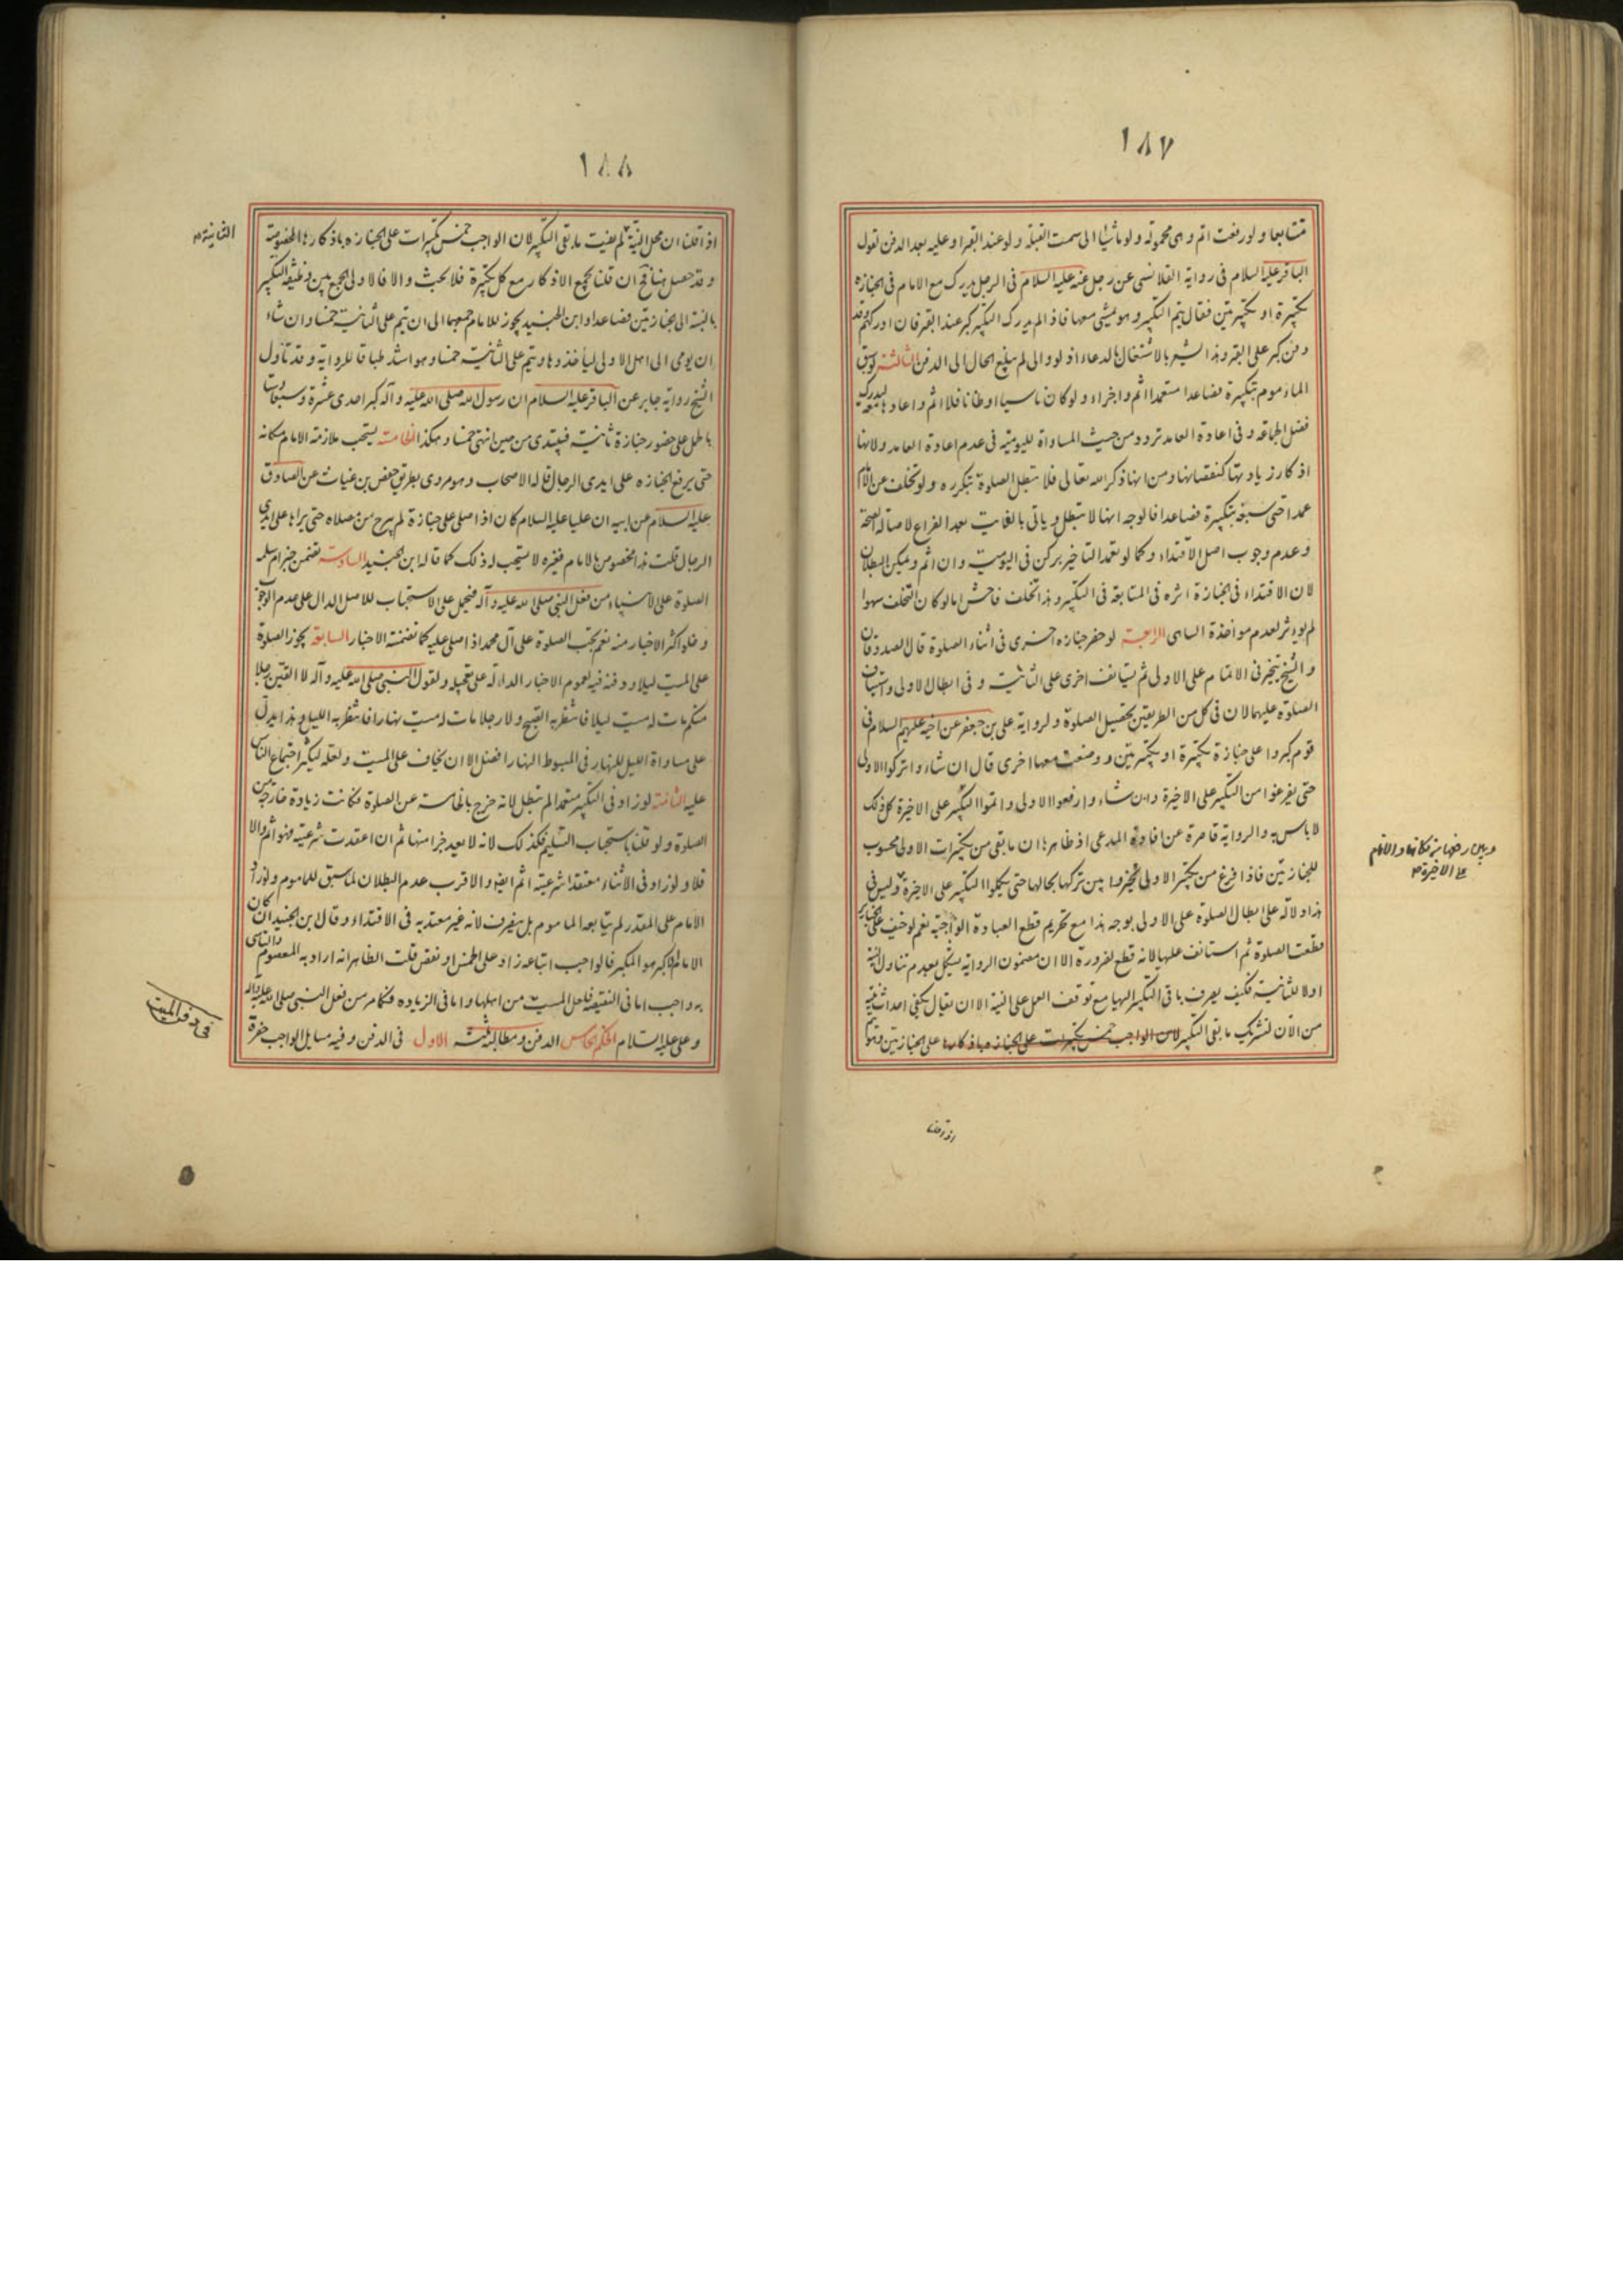 ١٨٧
متتابعا ولو رفعت اتم وهي محمولة ولو ماشيا الى سمت القبلة ولو عند القبر او عليه بعد الدفن لقول
الباقر عليه السلام في رواية القلانسي عن رجل عنه عليه السلام في الرجل يدرك مع الامام في الجنازة
تكبيرة او تكبيرتين فقال يتم التكبير وهو يمشي معها فاذا لم يدرك التكبير كبر عند القبر فان ادركهم وقد
دفن كبر على القبر وهذا يشعر بالاشتغال بالدعاء اذ لو والى لم يبلغ الحال الى الدفن الثالثة لو سبق
الماموم بتكبيرة فصاعدا متعمدا اثم واجزاء ولو كان ناسيا او ظانا فلا اثم واعادها ليدرك
فضل الجماعة وفي اعادة العامد تردد من حيث المساواة لليومية في عدم اعادة العامد ولانها
اذكار زيادتها كنقصانها ومن انها ذكر الله تعالى فلا تبطل الصلوة بتكرره ولو تخلف عن الامام
عمدا حتى سبقه بتكبيرة فصاعدا فالوجه انها لا تبطل وياتي بالفايت بعد الفراغ لاصالة الصحة
وعدم وجوب اصل الاقتداء وكما لو تعمد التاخير بركن في اليومية وان اثم ويمكن البطلان
لان الاقتداء في الجنازة اثره في المتابعة في التكبير وهذا تخلف فاحش اما لو كان التخلف سهوا
لم يوثر لعدم مواخذة الساهي الرابعة لو حضر جنازه اخرى في اثناء الصلوة قال الصدوقان
والشيخ يتخير في الاتمام على الاولى ثم يستانف اخرى على الثانية وفي ابطال الاولى واستيناف
الصلوة عليهما لان في كل من الطريقين تحصيل الصلوة ولرواية علي بن جعفر عن اخيه عليهم السلام في
قوم كبروا على جنازة تكبيرة او تكبيرتين ووضعت معها اخرى قال ان شاءوا تركوا الاولى
حتى يفرغوا من التكبير على الاخيرة وان شاءوا رفعوا الاولى واتموا التكبير على الاخيرة كل ذلك
لا باس به والرواية قاصرة عن افادة المدعى اذ ظاهرها ان ما بقي من تكبيرات الاولى محسوب
للجنازتين فاذا فرغ من تكبير الاولى تخيروا بين تركها بحالها حتى يكملوا التكبير على الاخيرة وليس في
وبين رفعها من مكانها والاتمام
على الاخيرة
هذا دلالة على ابطال الصلوة على الاولى بوجه هذا مع تحريم قطع العبادة الواجبة نعم لو خيف على الجنايز
قطعت الصلوة ثم استانف عليها لانه قطع لضرورة الا ان مضمون الرواية يشكل بعدم تناول النية
اولا للثانية فكيف يصرف باقي التكبير اليها مع توقف العمل على النية الا ان يقال يكفي احداث نية
من الان لتشريك ما بقي التكبير لان الواجب خمس تكبيرات على الجنازه باذكارها على الجنازتين
اذا قلنا
١٨٨
اذا قلنا ان محل النية لم يفت ما بقي التكبير لان الواجب خمس تكبيرات على الجنازه باذكارها المخصوصة
الثانية
وقد حصل هنا فح ان قلنا بجمع الاذكار مع كل تكبيرة فلا بحث والا فالاولى الجمع بين وظيفة التكبير
بالنسبة الى الجنازتين فصاعدا وابن الجنيد يجوز للامام جمعهما الى ان يتم على الثانية خمسا وان شاء
ان يومى الى اهل الاولى لياخذوها ويتم على الثانية خمسا وهو اشد طباقا للرواية وقد تأول
الشيخ رواية جابر عن الباقر عليه السلام ان رسول الله صلى الله عليه وآله كبر احدى عشرة وسبعا وستا
بالحمل على حضور جنازة ثانية فيبتدى من حين انتهى خمسا وهكذا الخامسة يستحب ملازمة الامام مكانه
حتى يرفع الجنازه على ايدى الرجال قاله الاصحاب وهو مروي بطريق حفص بن غياث عن الصادق
عليه السلام عن ابيه ان عليا عليه السلام كان اذا صلى على جنازة لم يبرح من مصلاه حتى يراها على ايدي
الرجال قلت هذا مخصوص بالامام فغيره لا يستحب له ذلك كما قاله ابن الجنيد السادسة تضمن خبر ام سلمه
الصلوة على الانبياء من فعل النبي صلى الله عليه وآله فيحمل على الاستحباب للاصل الدال على عدم الوجوب
وخلو اكثر الاخبار منه نعم تجب الصلوة على آل محمد اذا صلى عليه كما تضمنته الاخبار السابعة يجوز الصلوة
على الميت ليلا ودفنه فيه لعموم الاخبار الدالة على تعجيله ولقول النبي صلى الله عليه وآله لا الفين رجلا
منكم مات له ميت ليلا فانتظر به الصبح ولا رجلا مات له ميت نهارا فانتظر به الليل وهذا يدل
على مساواة الليل للنهار في المبسوط النهار افضل الا ان يخاف على الميت ولعله ليكثر اجتماع الناس
عليه الثامنة لو زاد في التكبير متعمدا لم تبطل لانه خرج بالخامسة عن الصلوة فكانت زيادة خارجة من
الصلوة ولو قلنا باستحباب التسليم فكذلك لانه لا يعد جزا منها ثم ان اعتقدت شرعيته فهو اثم والا
فلا ولو زاد في الاثناء معتقدا شرعيته اثم ايضا والاقرب عدم البطلان لما سبق للماموم ولو زاد
الامام على المقدر لم يتابعه الماموم بل ينصرف لانه غير معتد به في الاقتداء وقال ابن الجنيد ان كان
الامام الاكبر هو المكبر فالواجب اتباعه زاد على الخمس او نقص قلت الظاهر انه اراد به المعصوم والتاسي
به واجب اما في النقيصة فلعل الميت من اهلها واما في الزياده فكما مر من فعل النبي صلى الله عليه وآله
وعلي عليه السلام الحكم الخامس الدفن ومطالبه ثلثة الاول في الدفن وفيه مسايل الواجب حفرة
في دفن الميت